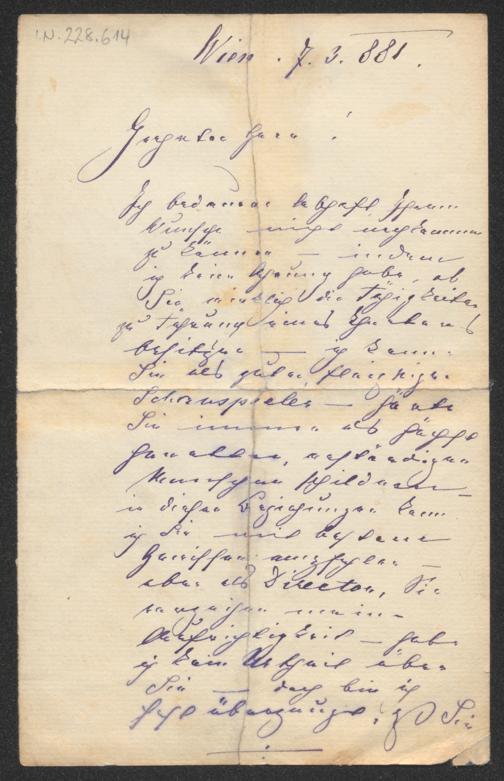 I.N. 228.614
Wien . 7. 3. 881.
Geehrter Herr !
Ich bedauere lebhaft Ihrem
Wunsche nicht nachkommen
zu können – indem
ich keine Ahnung habe, ob
Sie wirklich die Fähigkeiten
zu Führung eines Theaters
besitzen – ich kenne
Sie als guten, fleißigen
Schauspieler – hörte
Sie immer als höchst
honetten, anständigen
Menschen schildern –
in diesen Beziehungen kann
ich Sie mit bestem
Gewissen empfehlen –
aber als Director, Sie
verzeihen meine
Aufrichtigkeit – habe
ich kein Urtheil über
Sie – doch bin ich
fest überzeugt, daß Sie